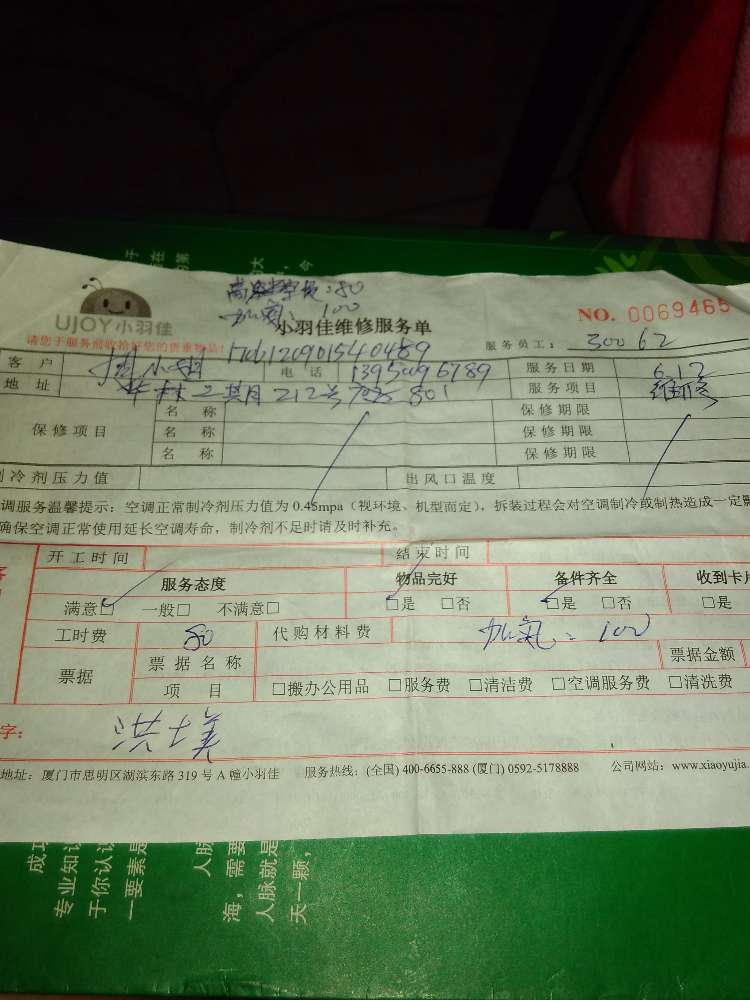 高空作业费:80
加氟:100
UJOY小羽佳
小羽佳维修服务单
NO. 0069465
请您于服务前收拾好您的贵重物品!
服务员工: 30062
客 户
电 话
服务日期 6.12
地 址
212号
801
服务项目 维修
保修项目
名 称
保修期限
名 称
保修期限
名 称
保修期限
制冷剂压力值
出风口温度
调服务温馨提示:空调正常制冷剂压力值为 0.45mpa(视环境、机型而定),拆装过程会对空调制冷或制热造成一定
确保空调正常使用延长空调寿命,制冷剂不足时请及时补充。
开工时间
结束时间
服务态度
物品完好
备件齐全
收到卡片
满意□ 一般□ 不满意□
□是 □否
□是 □否
□是
工时费 80
代购材料费 加氟:100
票据
票据名称
票据金额
项 目
□搬办公用品 □服务费 □清洁费 □空调服务费 □清洗费
字:
地址:厦门市思明区湖滨东路 319 号 A 幢小羽佳 服务热线:(全国) 400-6655-888 (厦门) 0592-5178888 公司网站:www.xiaoyujia.
成功
专业知识
于你认识
一要素是
人脉
海,需要
人脉就是
天一颗,